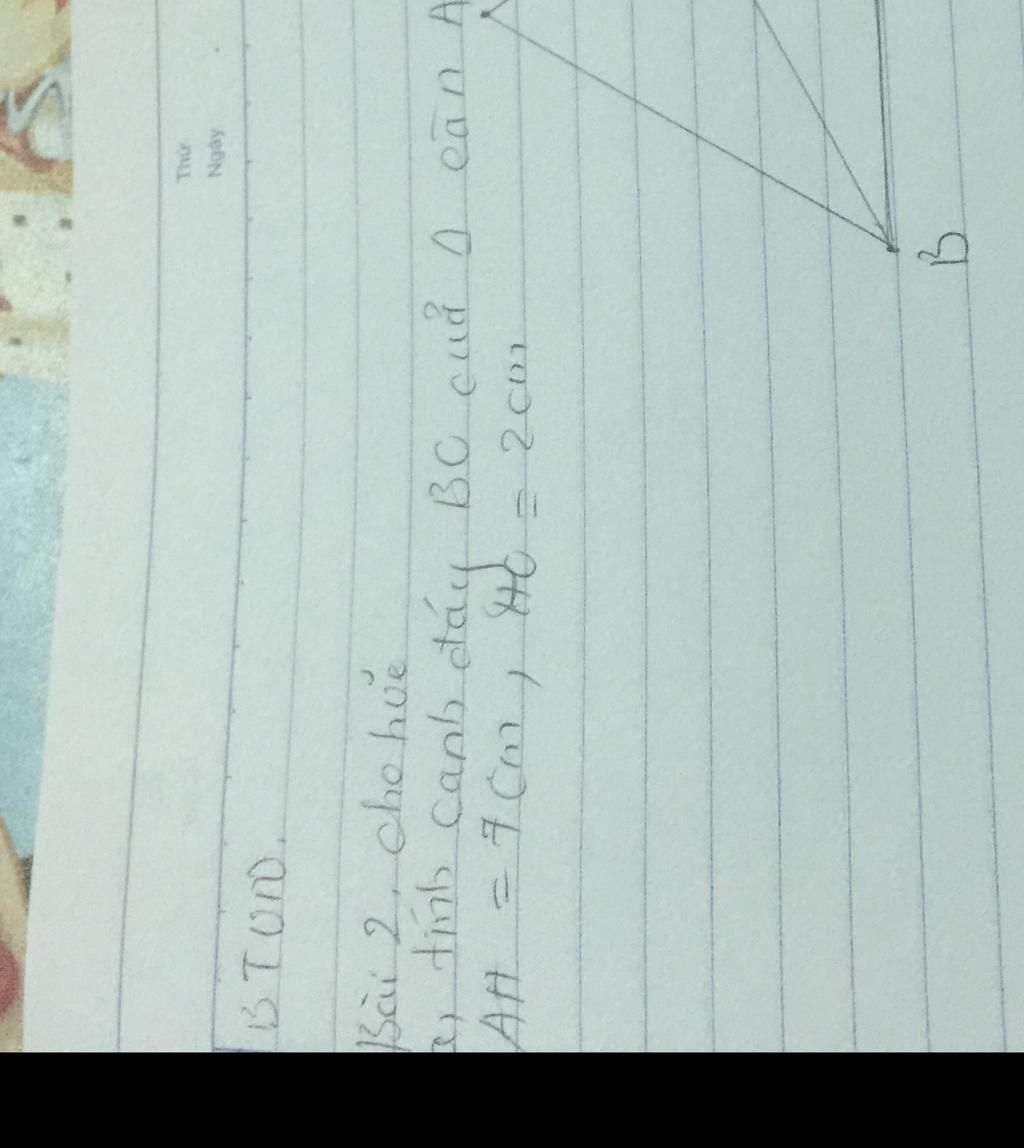 Thứ
Ngày
BTVN.
Bài 2, cho hvẽ
a, tính cạnh đáy BC của Δ cân A
AH = 7 cm, HC = 2 cm
B